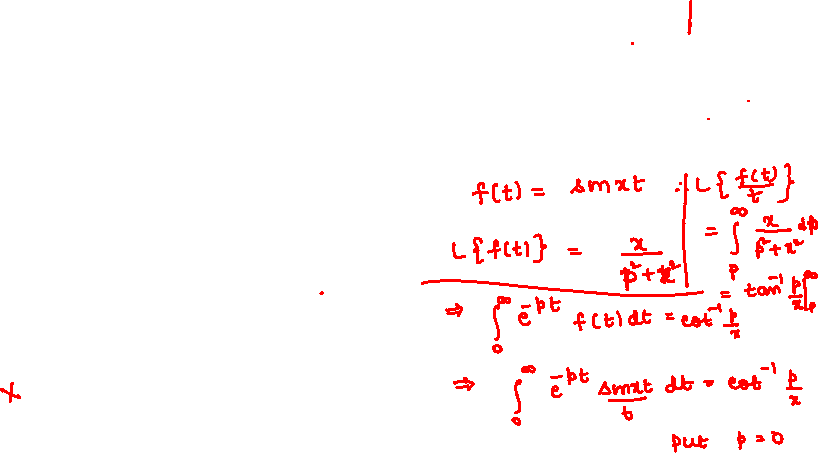 f(t) = sin xt
L{f(t)} = x/(p²+x²)
∴ L{f(t)/t}
= ∫_p^∞ x/(p²+x²) dp
= tan⁻¹ p/x |_p^∞
⇒ ∫_0^∞ e^{-pt} f(t) dt = cot⁻¹ p/x
⇒ ∫_0^∞ e^{-pt} sin xt/t dt = cot⁻¹ p/x
put p = 0